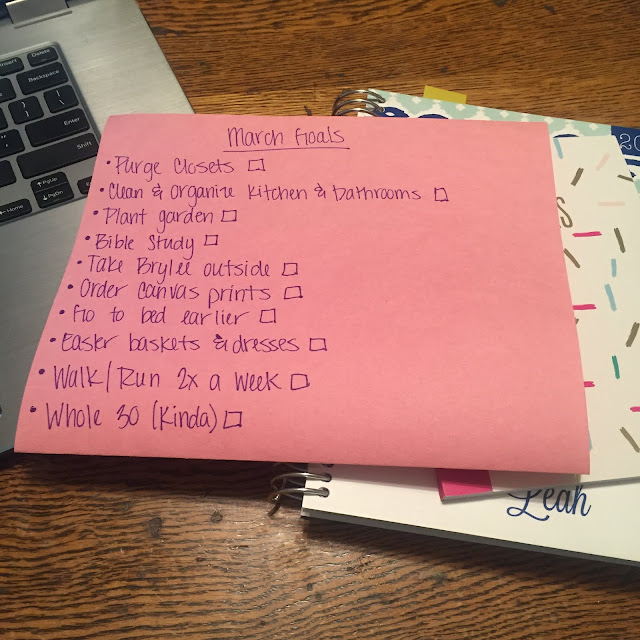 Insert
Delete
Backspace
Enter
Shift
PgUp
PgDn
Home
March Goals
• Purge Closets □
• Clean & Organize Kitchen & bathrooms □
• Plant garden □
• Bible Study □
• Take Brylee outside □
• Order Canvas prints □
• Go to bed earlier □
• Easter baskets & dresses □
• Walk/Run 2x a week □
• Whole 30 (Kinda) □
20
Leah